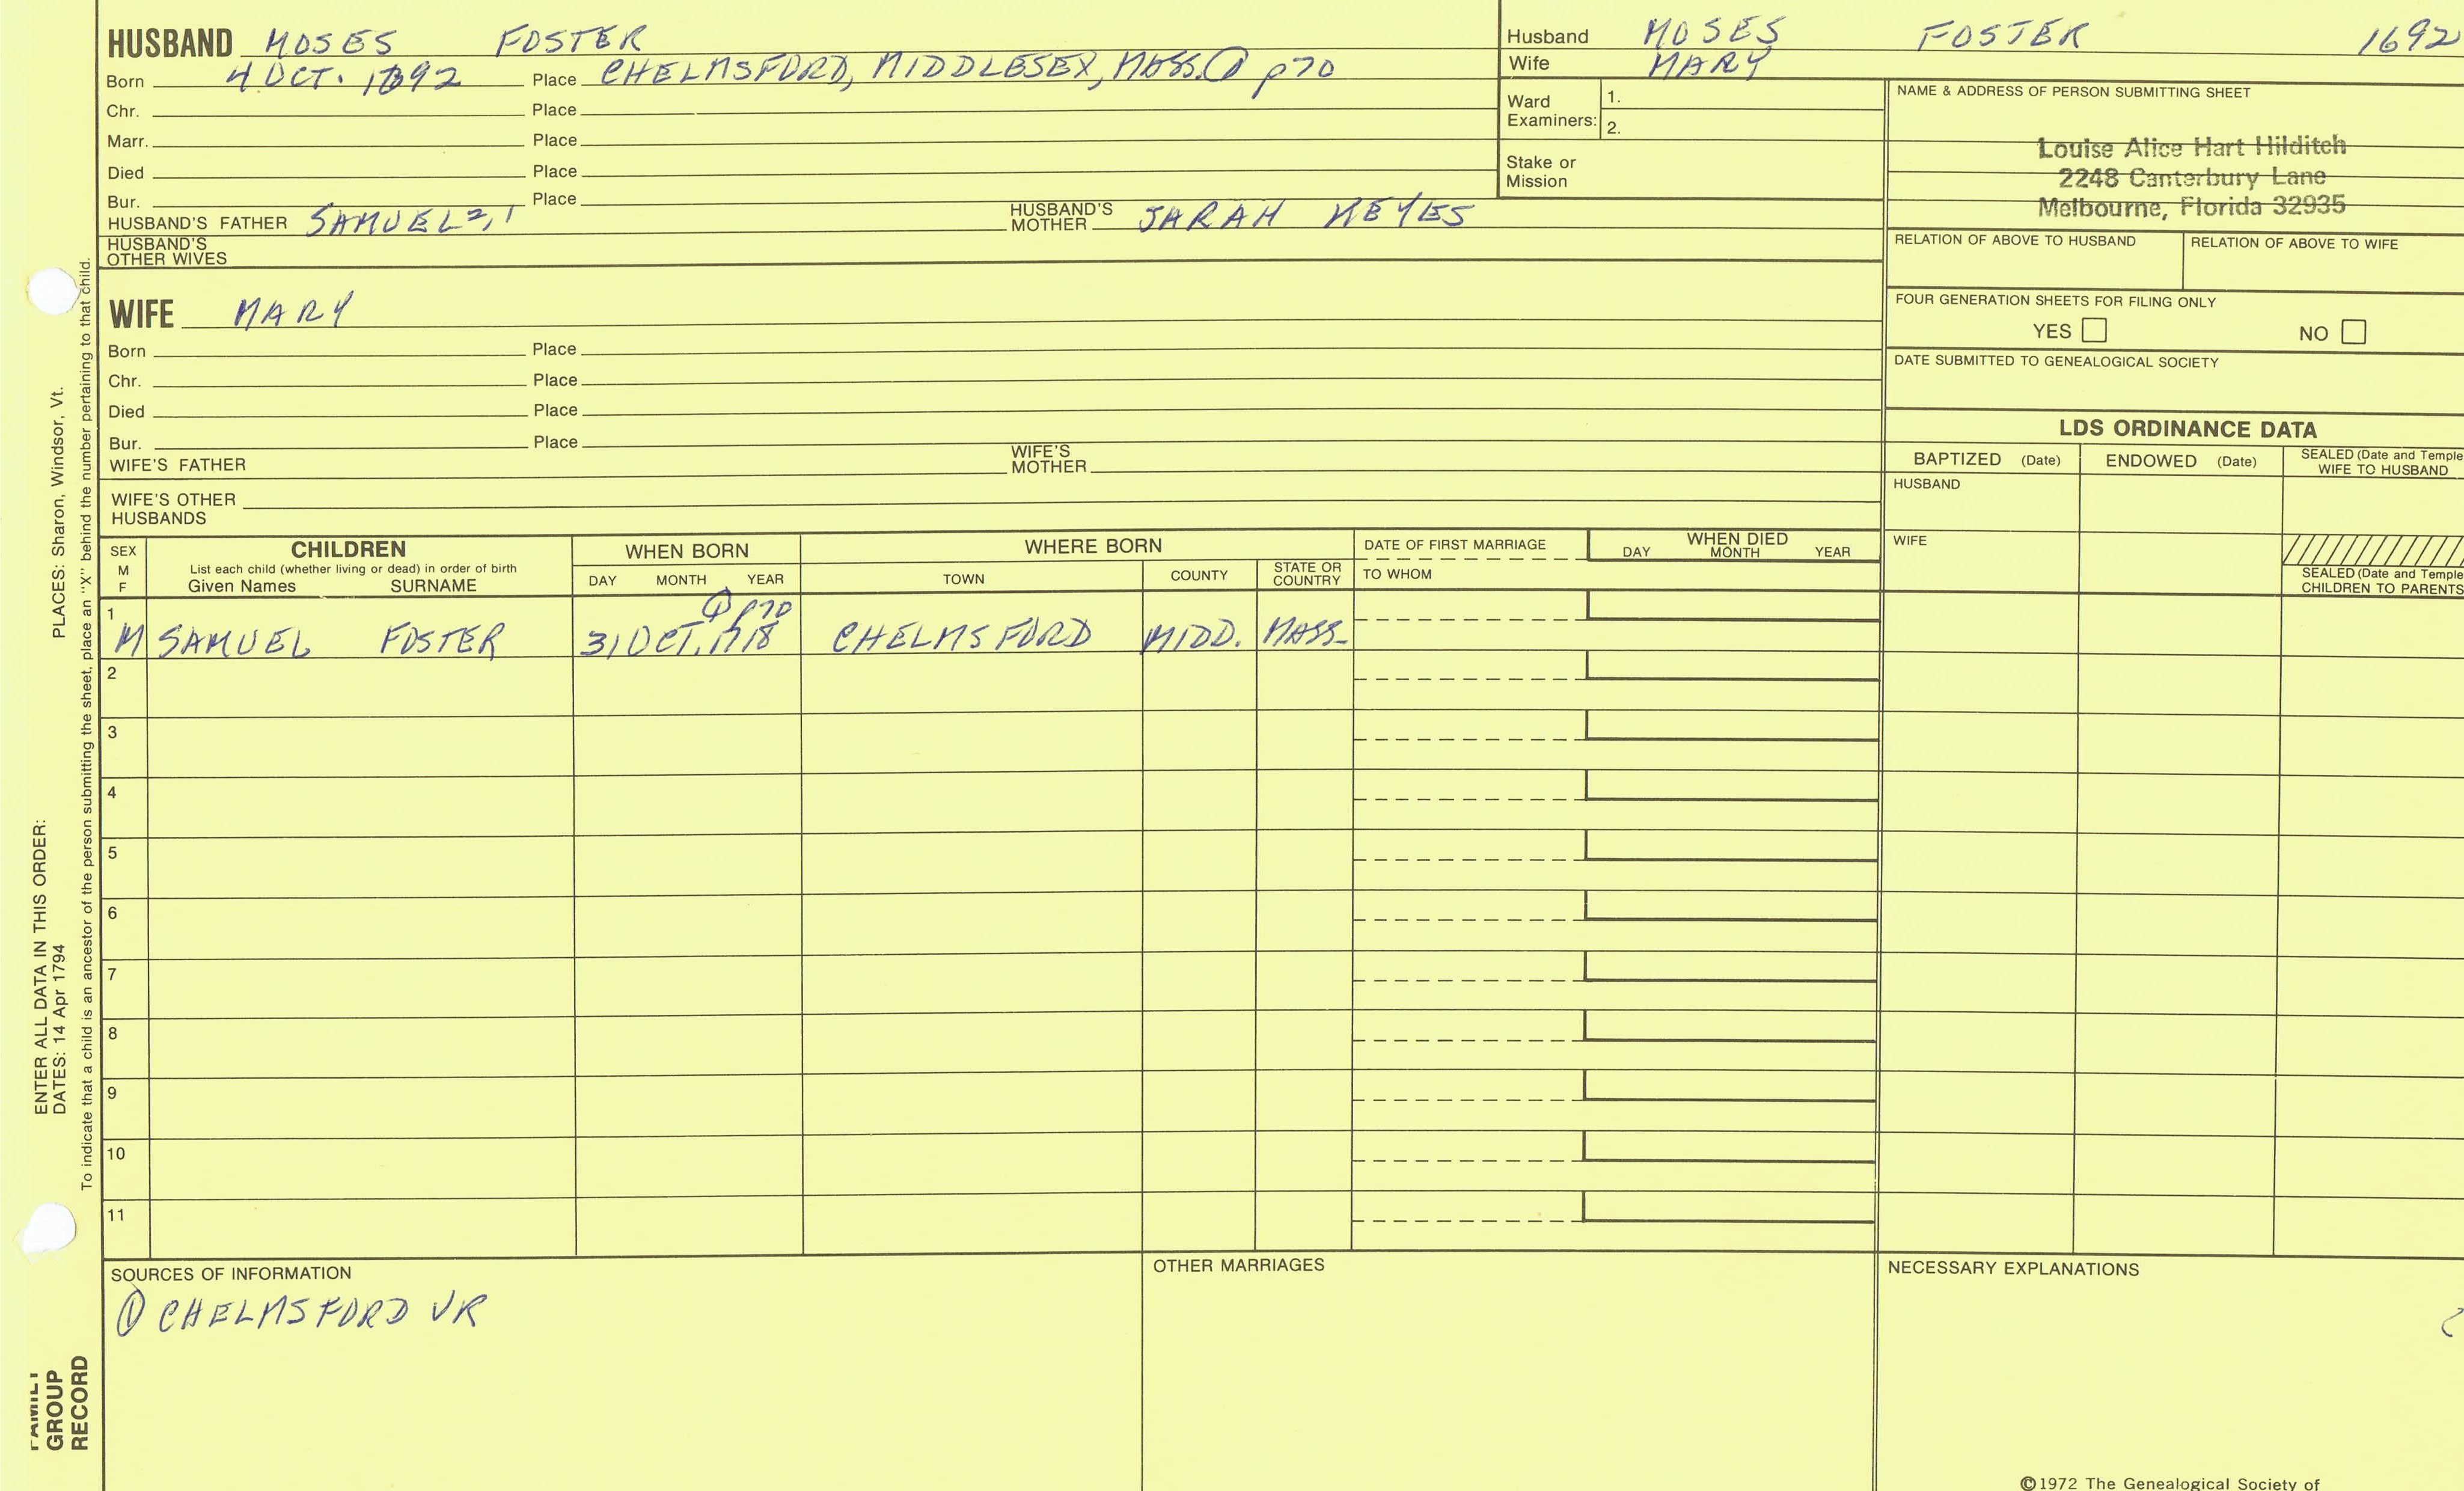 HUSBAND MOSES FOSTER
Born 4 OCT. 1692 Place CHELMSFORD, MIDDLESEX, MASS. ① p70
Chr. Place
Marr. Place
Died Place
Bur. Place
HUSBAND'S FATHER SAMUEL 2, 1 HUSBAND'S MOTHER SARAH KEYES
HUSBAND'S OTHER WIVES
Husband MOSES FOSTER 1692
Wife MARY
Ward Examiners: 1.
2.
Stake or Mission
NAME & ADDRESS OF PERSON SUBMITTING SHEET
Louise Alice Hart Hilditch
2248 Canterbury Lane
Melbourne, Florida 32935
RELATION OF ABOVE TO HUSBAND RELATION OF ABOVE TO WIFE
FOUR GENERATION SHEETS FOR FILING ONLY
YES NO
DATE SUBMITTED TO GENEALOGICAL SOCIETY
WIFE MARY
Born Place
Chr. Place
Died Place
Bur. Place
WIFE'S FATHER WIFE'S MOTHER
WIFE'S OTHER HUSBANDS
LDS ORDINANCE DATA
BAPTIZED (Date) ENDOWED (Date) SEALED (Date and Temple
WIFE TO HUSBAND
HUSBAND
WIFE
SEALED (Date and Temple
CHILDREN TO PARENTS
SEX M F
CHILDREN
List each child (whether living or dead) in order of birth
Given Names SURNAME
WHEN BORN
DAY MONTH YEAR
WHERE BORN
TOWN COUNTY STATE OR COUNTRY
DATE OF FIRST MARRIAGE
TO WHOM
WHEN DIED
DAY MONTH YEAR
① p70
1 M SAMUEL FOSTER 31 OCT. 1718 CHELMSFORD MIDD. MASS.
2
3
4
5
6
7
8
9
10
11
SOURCES OF INFORMATION
① CHELMSFORD VR
OTHER MARRIAGES
NECESSARY EXPLANATIONS
©1972 The Genealogical Society of
ENTER ALL DATA IN THIS ORDER:
DATES: 14 Apr 1794 PLACES: Sharon, Windsor, Vt.
To indicate that a child is an ancestor of the person submitting the sheet, place an "X" behind the number pertaining to that child.
FAMILY
GROUP
RECORD